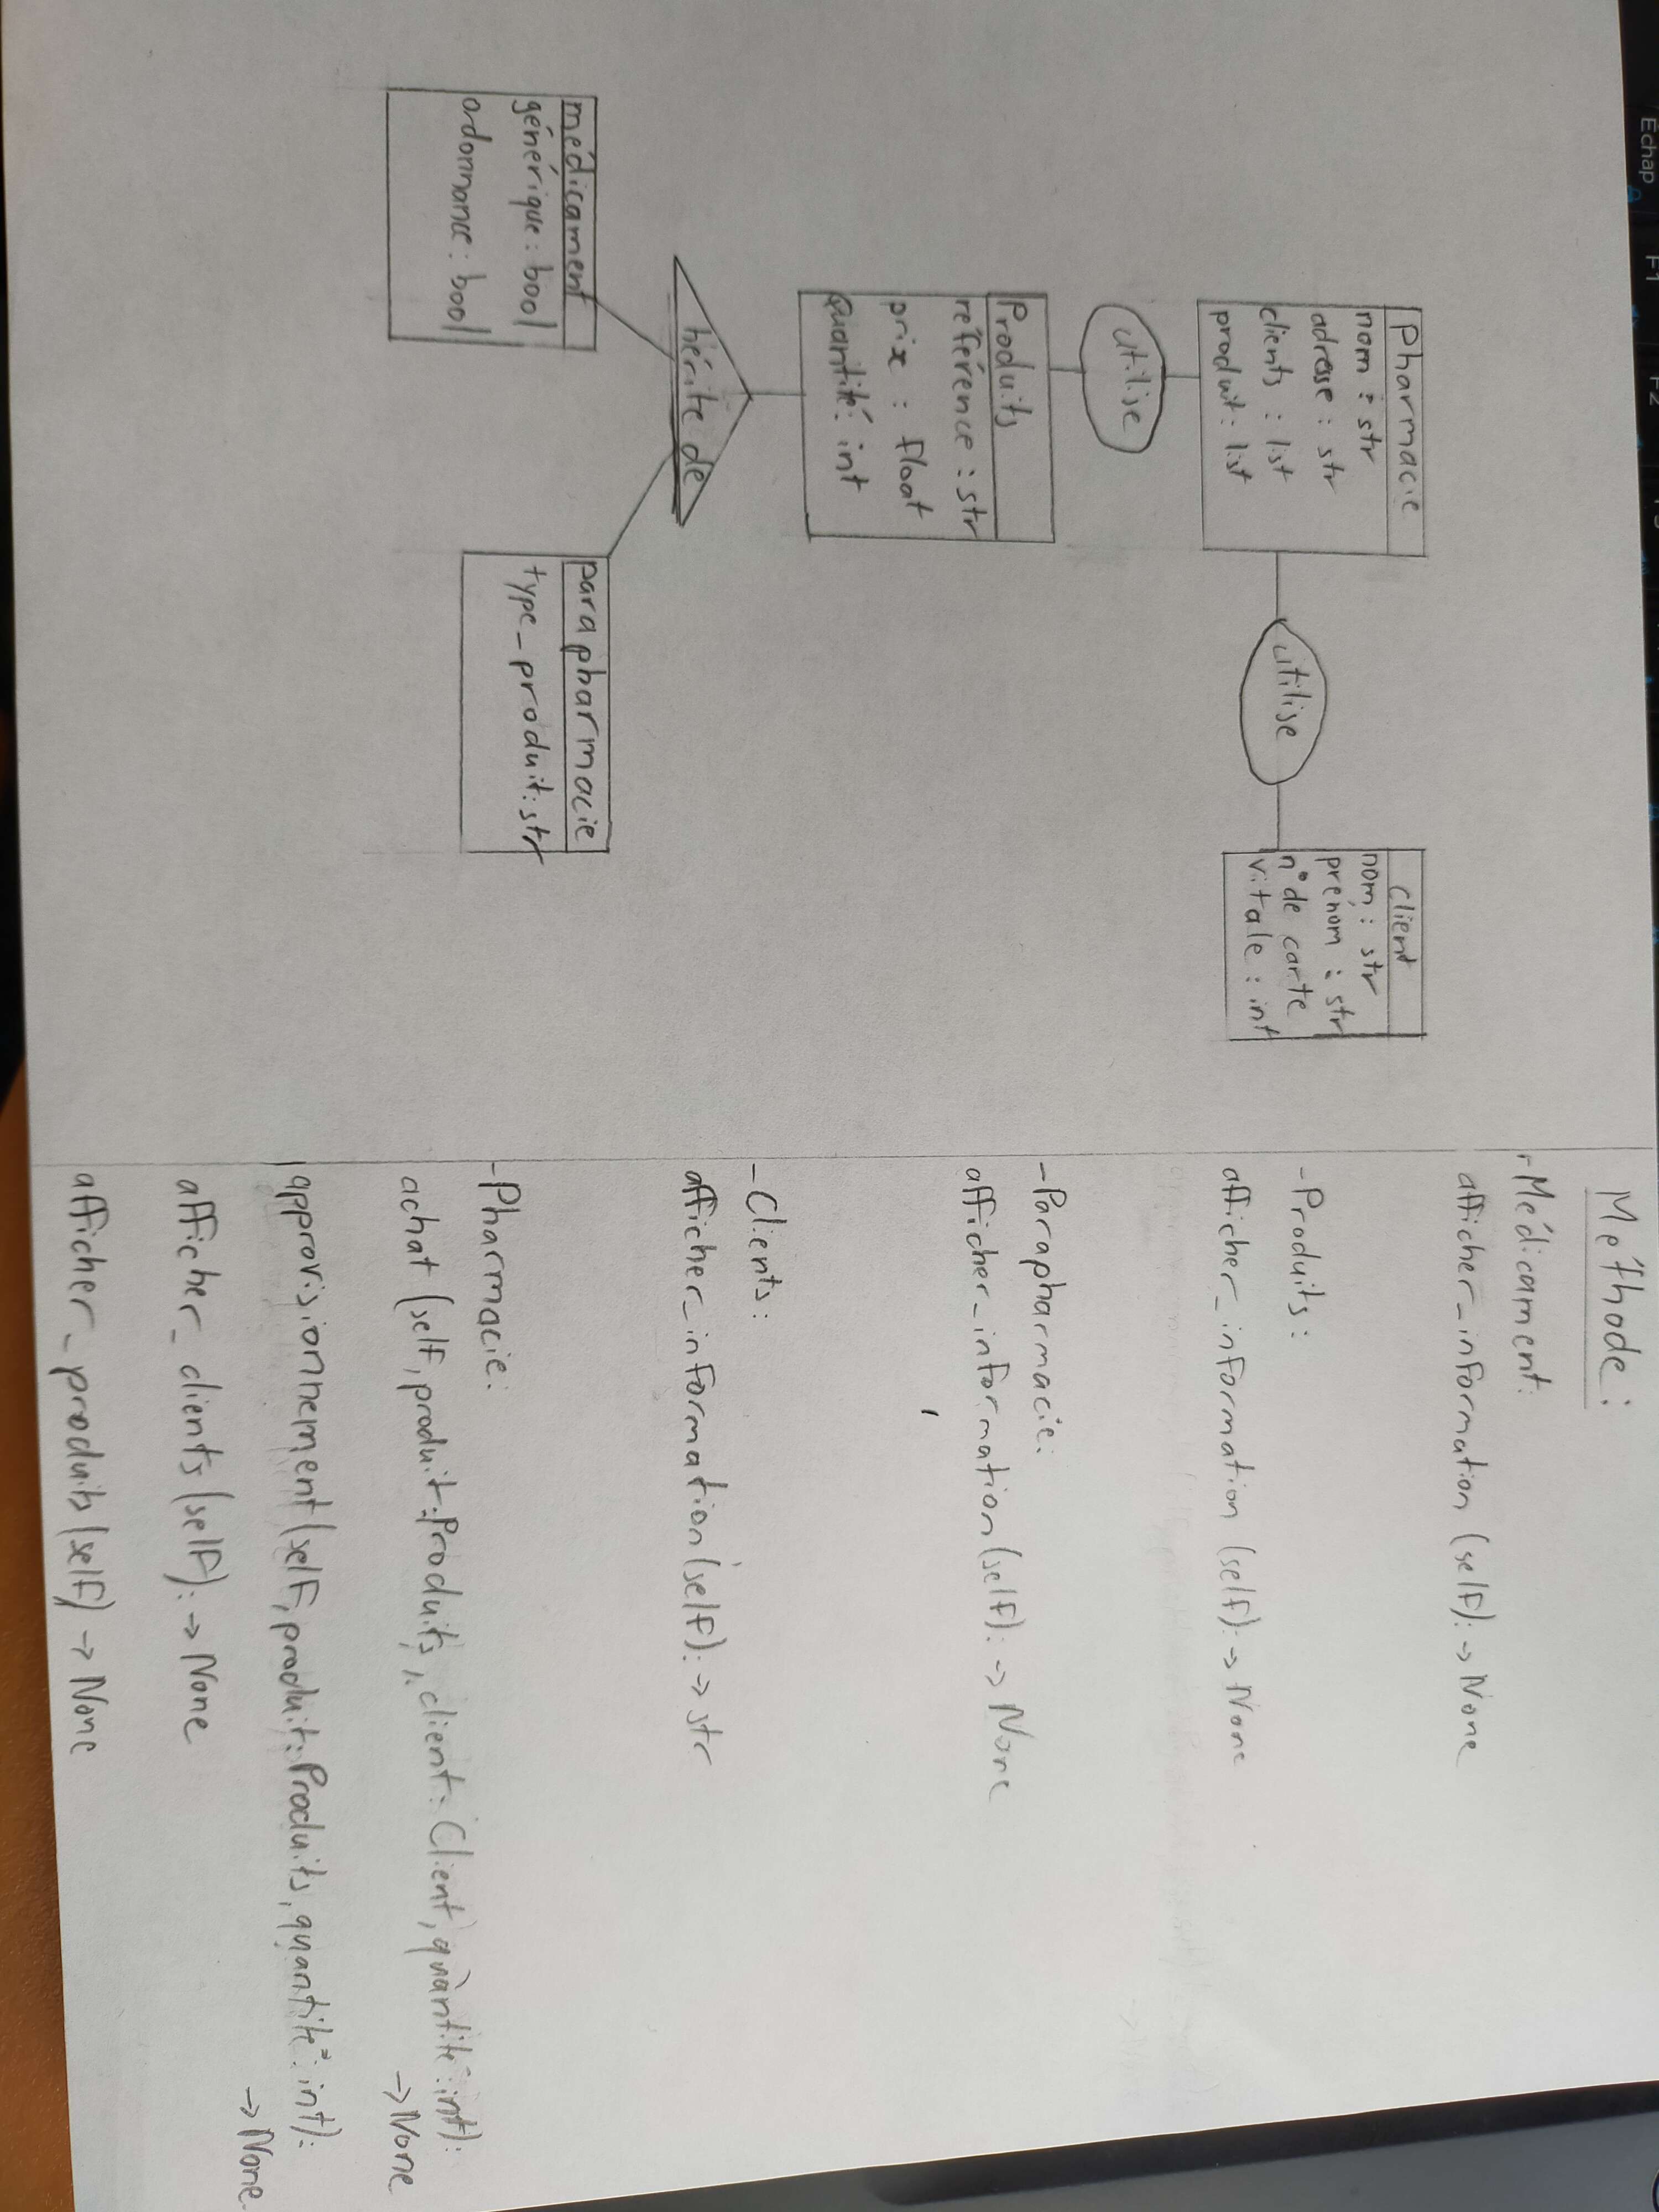 Pharmacie
nom : str
adresse : str
clients : list
produit : list
utilise
client
nom : str
prénom : str
n° de carte
vitale : int
utilise
Produits
référence : str
prix : float
Quantité : int
hérite de
médicament
générique : bool
ordonnance : bool
parapharmacie
type_produit : str
Méthode :
- Médicament :
afficher_information (self) : -> None
- Produits :
afficher_information (self) : -> None
- Parapharmacie :
afficher_information (self) : -> None
- Clients :
afficher_information (self) : -> str
- Pharmacie :
achat (self, produit : Produits, client : Client, quantité : int) :
-> None
approvisionnement (self, produit : Produits, quantité : int) :
-> None
afficher_clients (self) : -> None
afficher_produits (self) -> None
Echap
F1
F2